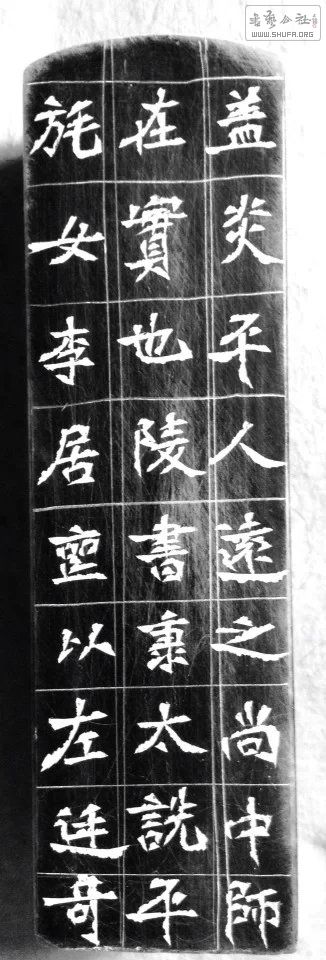 書藝公社
WWW.SHUFA.ORG
盖炎平人遠之尚中師
在實也陵書太説平
旄女李居以左奇